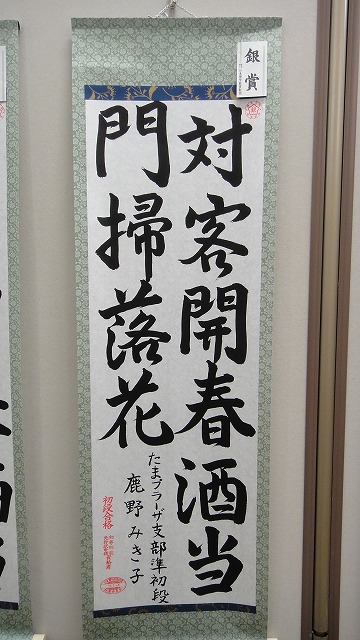 銀賞
対客開春酒当
門掃落花
たまプラーザ支部準初段
鹿野みき子
初段合格